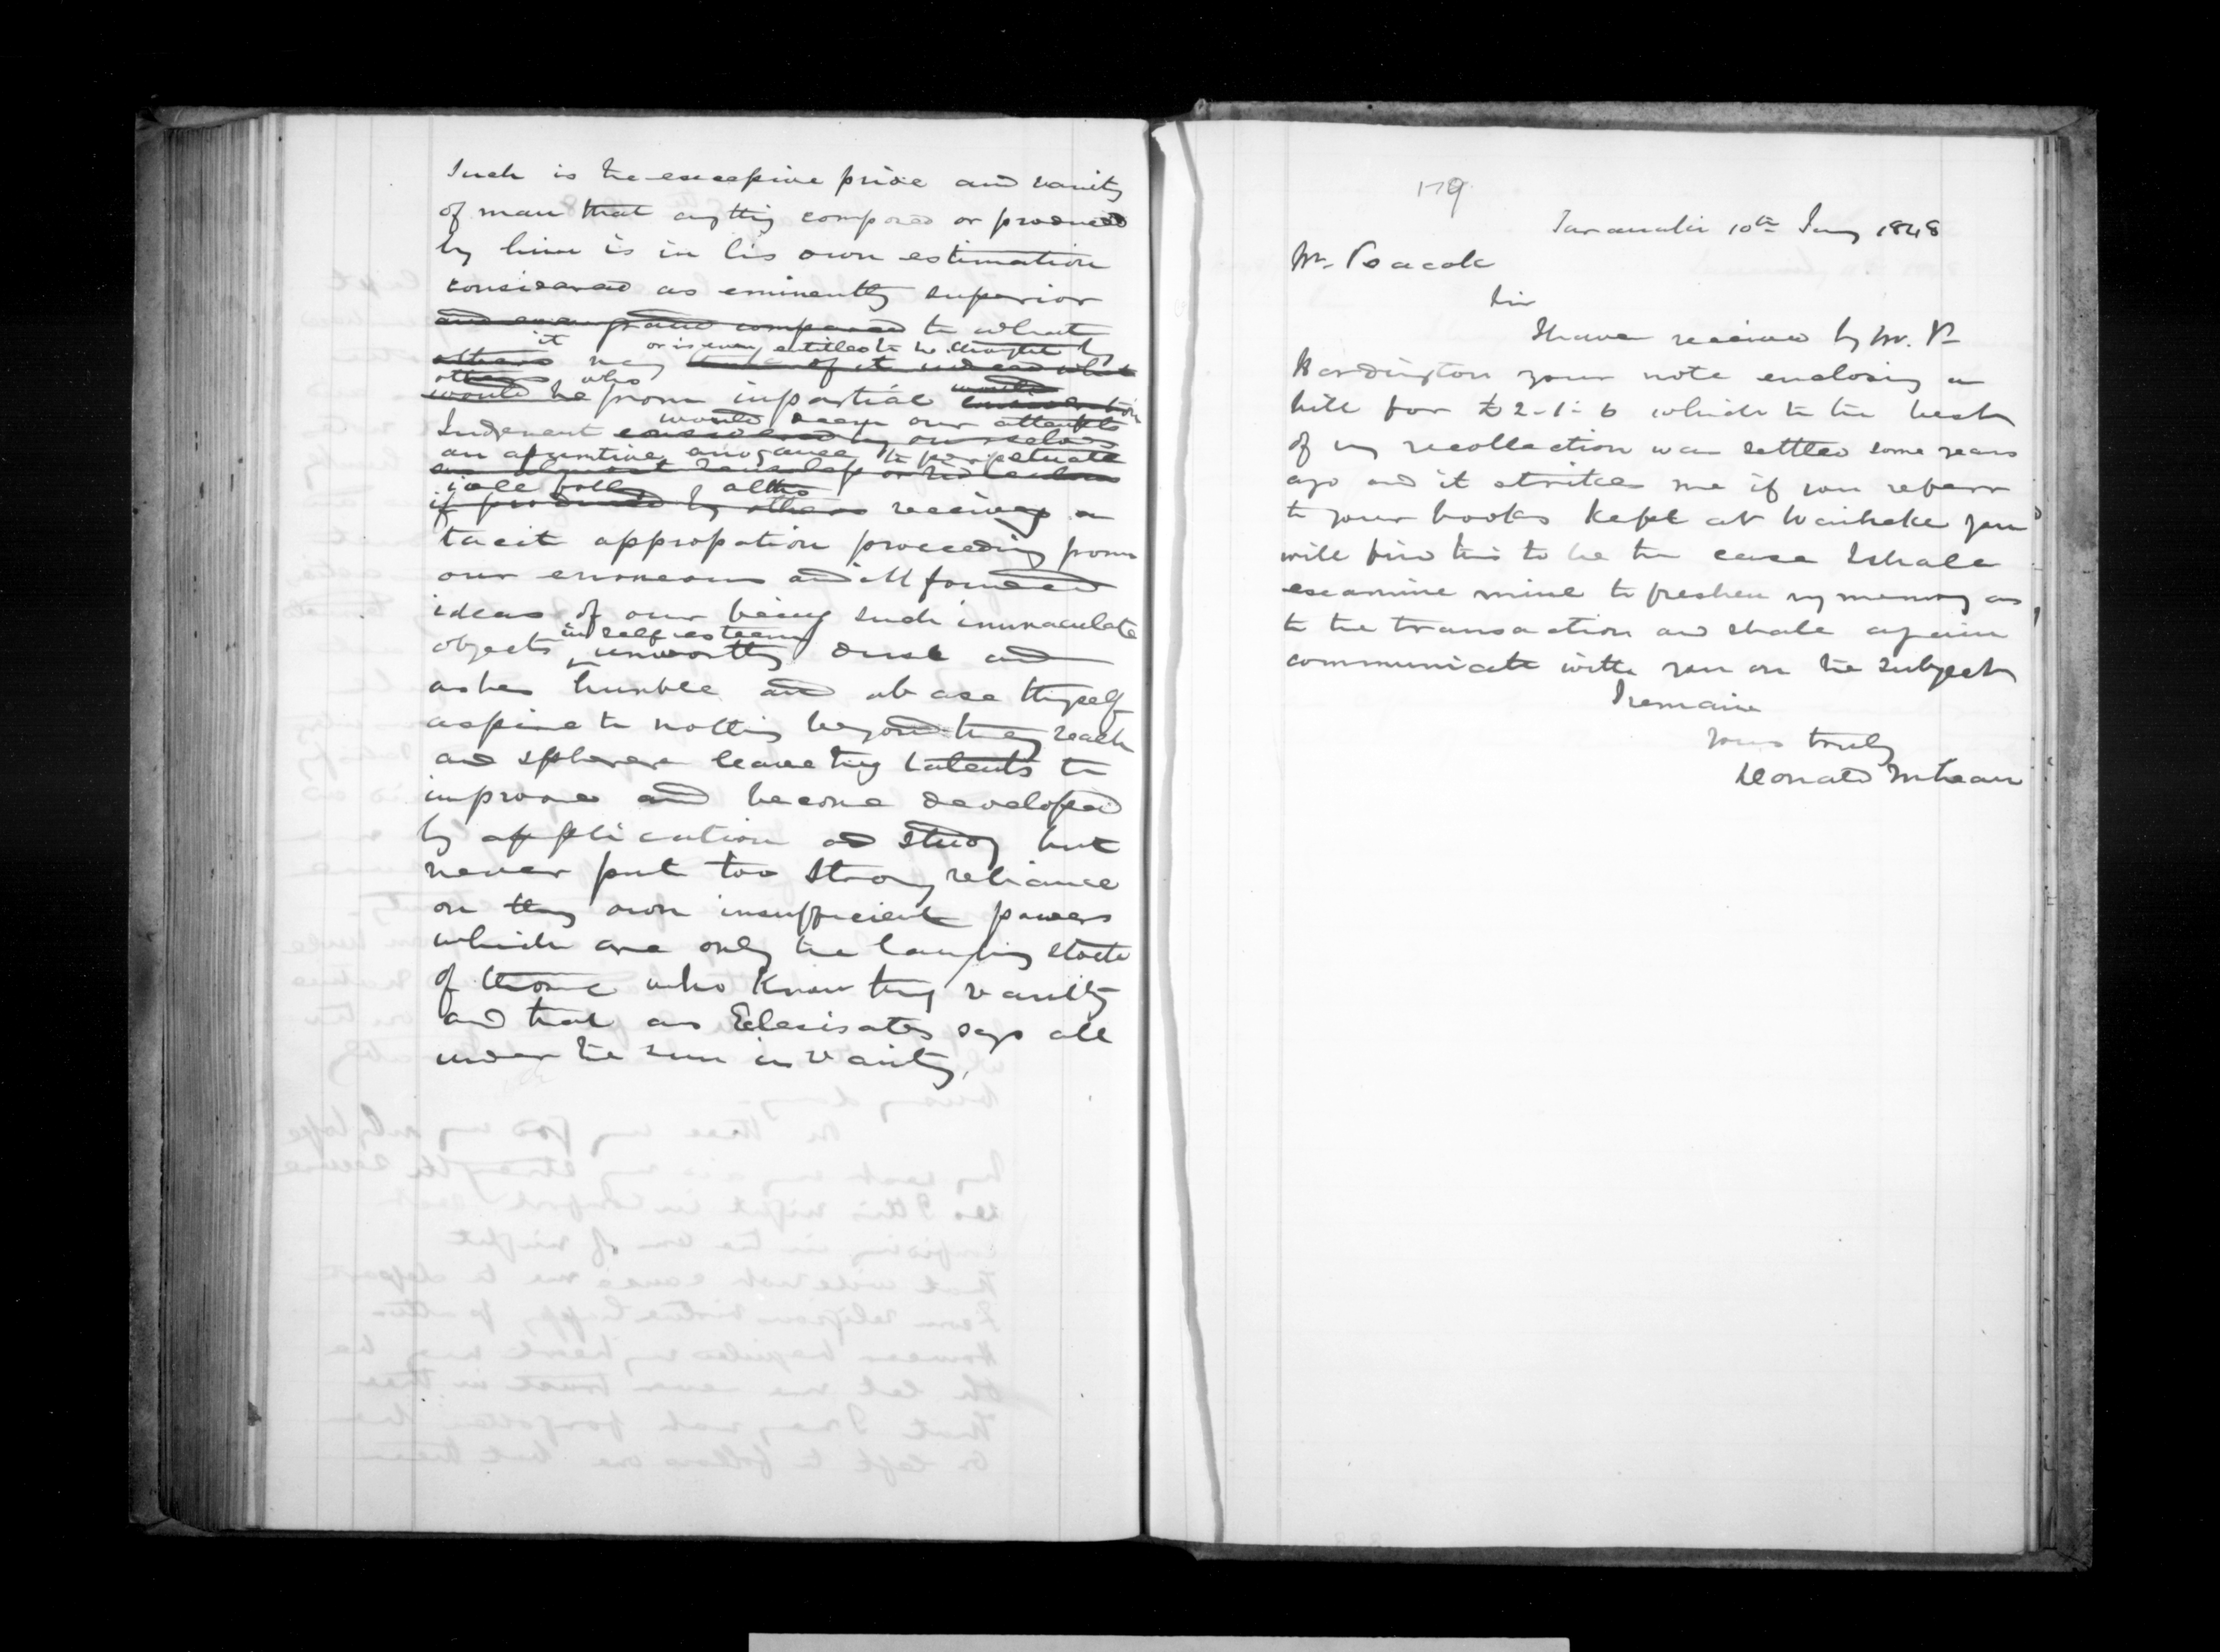 Such is the excessive pride and vanity
of man that anything composed or produced
by him is in his own estimation
considered as eminently superior
and even compared to what
it or is even entitled to be thought by
others may think of it indeed what
others who would
would be from impartial consideration
would deem our attempts
Judgment considered by ourselves
an assumtive arrogance to perpetuate
as almost or rediculous
idle folly altho
if produced by others receiving a
tacit appropation proceeding from
our erroneous and ill formed
ideas of our being such immaculate
in self esteem
objects unworthy dust and
ashes humble and abase thyself
aspire to nothing beyond thy reach
and sphere leave thy talents to
improve and become developed
by application and study but
never put too strong reliance
on thy own insufficient powers
which are only the laughing stock
of those who know thy vanity
and that as Eclesisates says all
under the sun is vanity,
179
Taranaki 10th Jany 1848
Mr. Peacock
Sir
I have received by Mr. P.
Hardington your note enclosing a
bill for £2-1-6 which to the best
of my recollection was settled some years
ago and it strikes me if you referr
to your books kept at Waiheke you
will find this to be the case I shall
examine mine to freshen my memory as
to the transaction and shall again
communicate with you on the subject
I remain
yours truly
Donald McLean